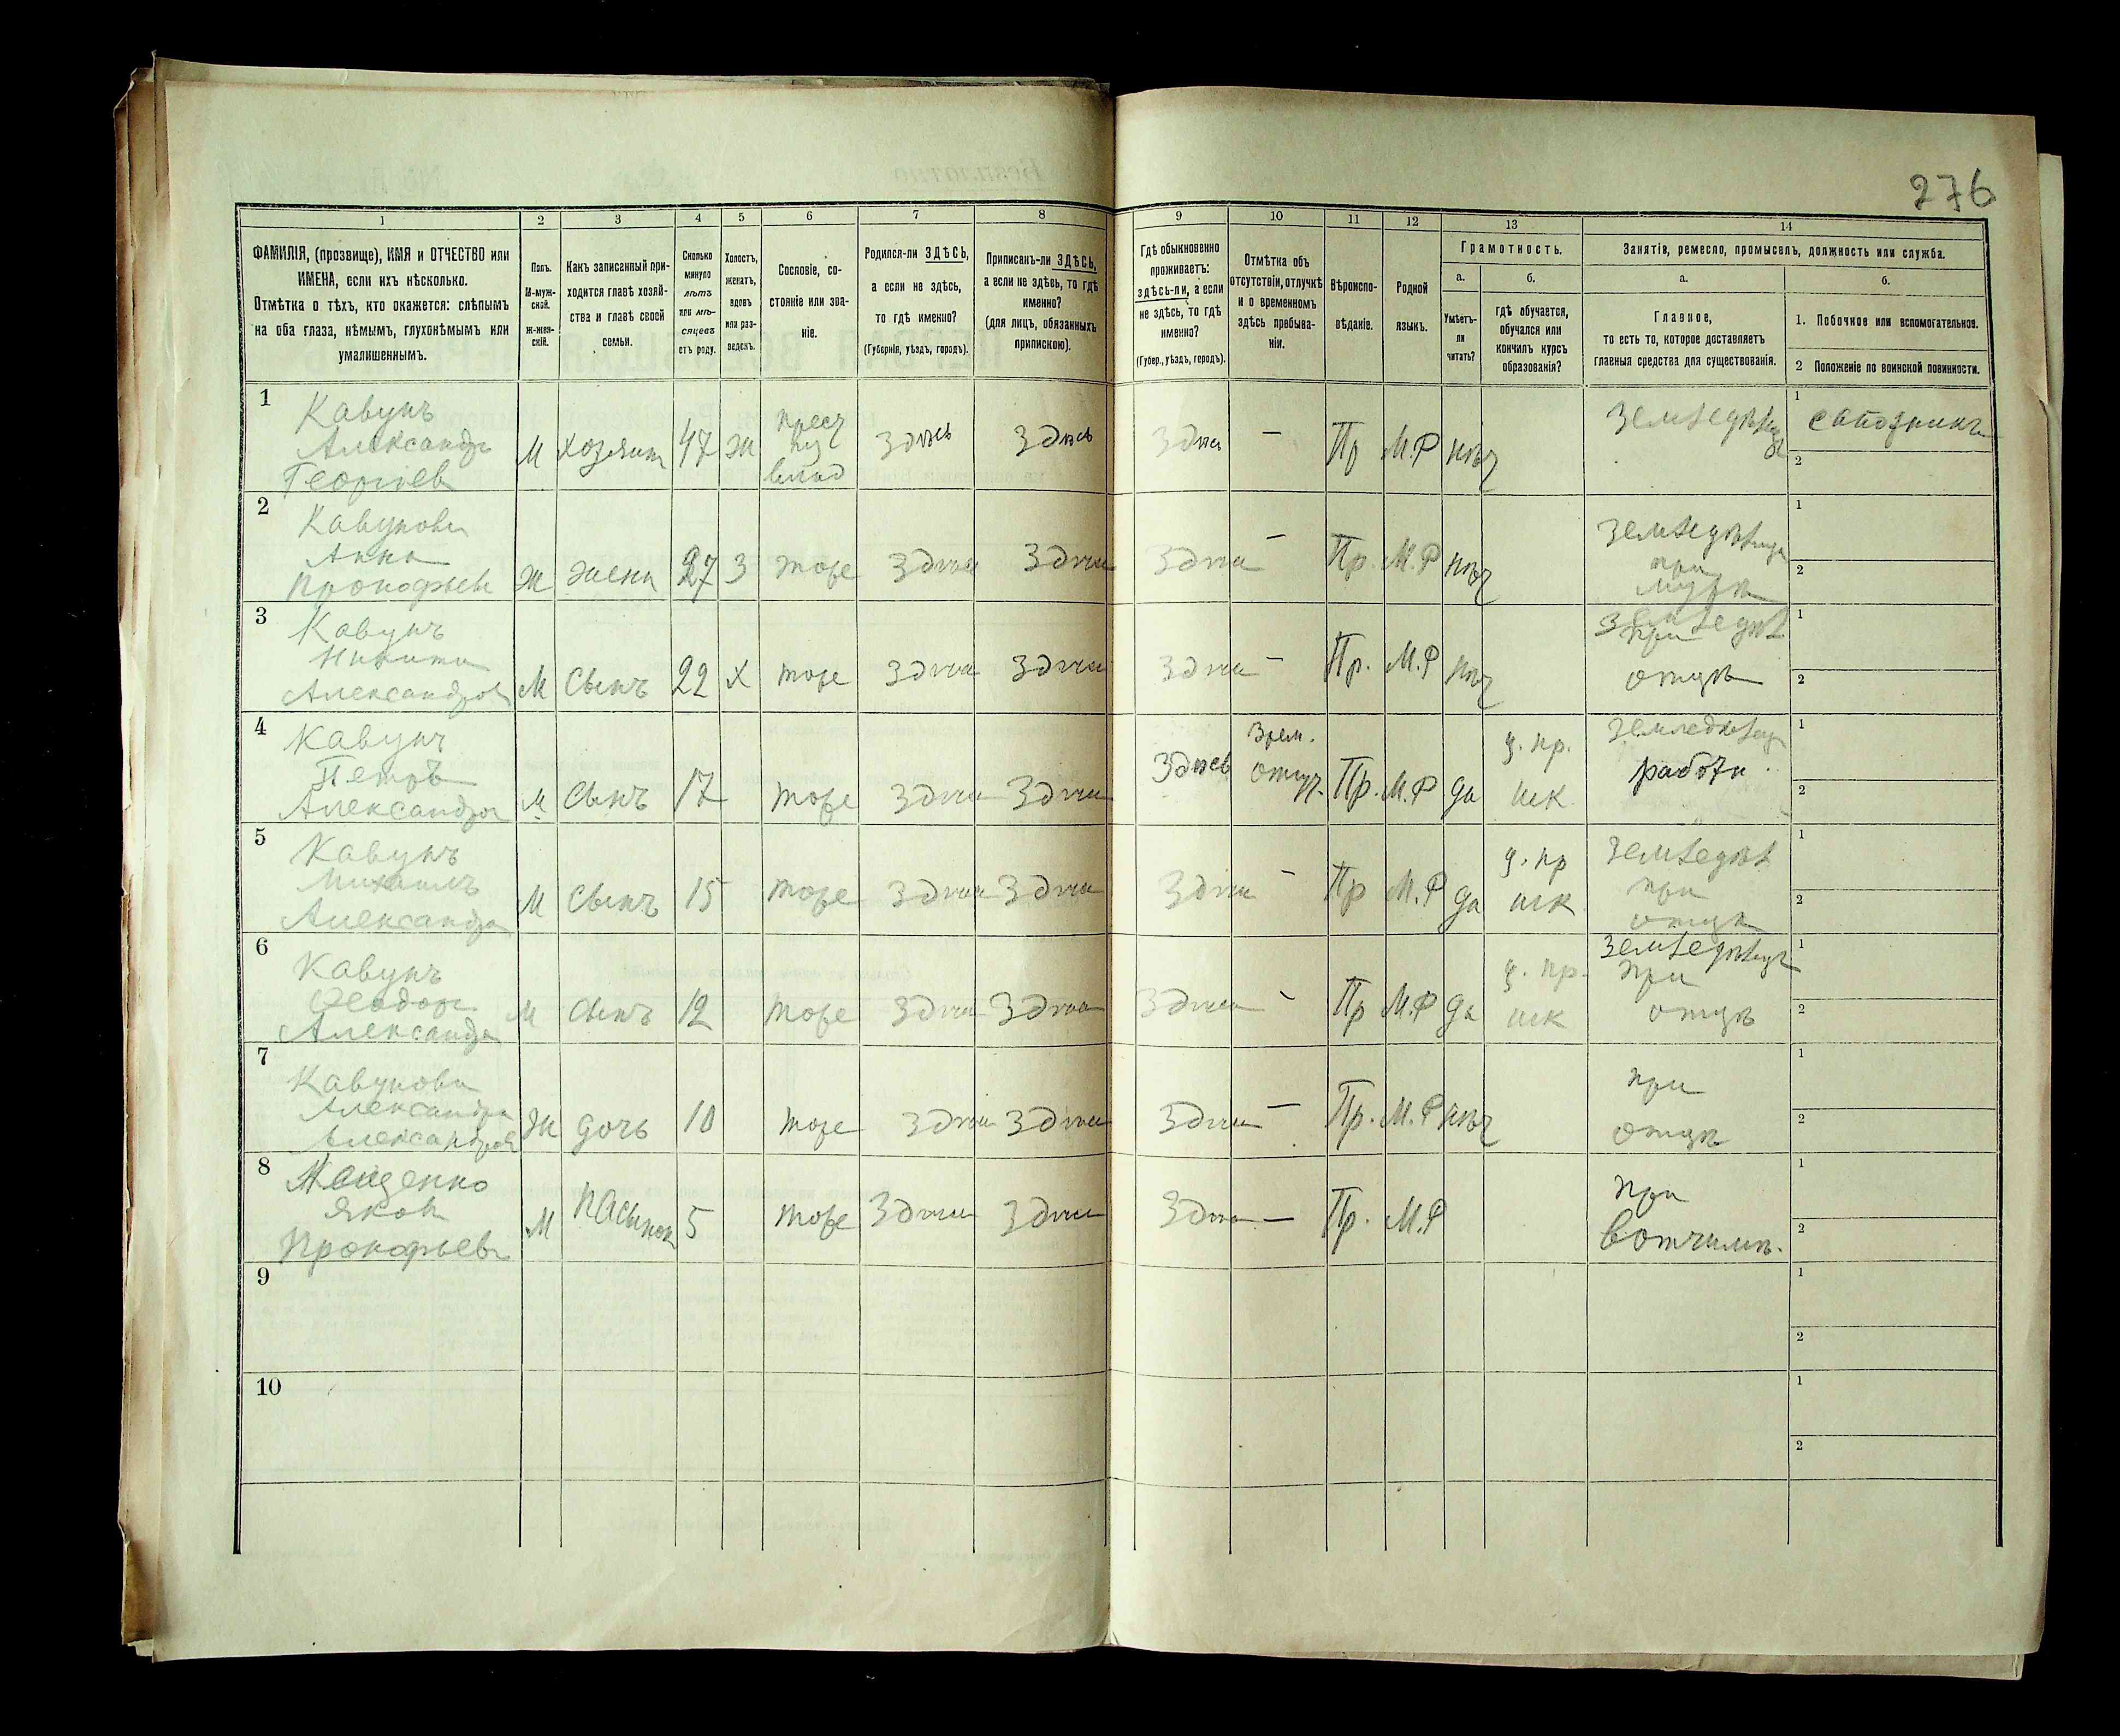 276
1 2 3 4 5 6 7 8 9 10 11 12 13 14
ФАМИЛІЯ, (прозвище), ИМЯ и ОТЧЕСТВО или
ИМЕНА, если ихъ нѣсколько.
Отмѣтка о тѣхъ, кто окажется: слѣпымъ
на оба глаза, нѣмымъ, глухонѣмымъ или
умалишеннымъ.
Полъ.
М-муж-
ской.
Ж-жен-
скій.
Какъ записанный при-
ходится главѣ хозяй-
ства и главѣ своей
семьи.
Сколько
минуло
лѣтъ
или мѣ-
сяцевъ
отъ роду.
Холостъ,
женатъ,
вдовъ
или раз-
веденъ.
Сословіе, со-
стояніе или зва-
ніе.
Родился-ли ЗДѢСЬ,
а если не здѣсь,
то гдѣ именно?
(Губернія, уѣздъ, городъ).
Приписанъ-ли ЗДѢСЬ,
а если не здѣсь, то гдѣ
именно?
(для лицъ, обязанныхъ
припискою).
Гдѣ обыкновенно
проживаетъ:
здѣсь-ли, а если
не здѣсь, то гдѣ
именно?
(Губер., уѣздъ, городъ).
Отмѣтка объ
отсутствіи, отлучкѣ
и о временномъ
здѣсь пребыва-
ніи.
Вѣроиспо-
вѣданіе.
Родной
языкъ.
Грамотность.
а.
Умѣетъ-
ли
читать?
б.
гдѣ обучается,
обучался или
кончилъ курсъ
образованія?
Занятія, ремесло, промыселъ, должность или служба.
а.
Главное,
то есть то, которое доставляетъ
главныя средства для существованія.
б.
1. Побочное или вспомогательное.
2 Положеніе по воинской повинности.
1
Кавунъ
Александр
Георгіев
М хозяинъ 47 ж
крест
влад
Здѣсь Здѣсь Здѣсь — Пр М.Р нѣт
1 сапожникъ
2
2
Кавунова
Анна
Прокофьев
ж жена 27 З тоже Здѣсь Здѣсь Здѣсь — Пр. М.Р нѣт
при
мужѣ
1
2
3
Кавунъ
Никита
Александров
М Сынъ 22 Х тоже Здѣсь Здѣсь Здѣсь — Пр. М.Р нѣт
при
отцѣ
1
2
4
Кавунъ
Петръ
Александров
М Сынъ 17 тоже Здѣсь Здѣсь Здѣсь
Врем.
Пр. М.Р да
ц. пр.
шк
1
2
5
Кавунъ
Михаилъ
Александр
М Сынъ 15 тоже Здѣсь Здѣсь Здѣсь — Пр М.Р да
ц. пр
шк
при
отцѣ
1
2
6
Кавунъ
Ѳеодоръ
Александр
М Сынъ 12 тоже Здѣсь Здѣсь Здѣсь — Пр М.Р да
ц. пр.
шк
при
отцѣ
1
2
7
Кавунова
Александра
Александров
Ж дочь 10 тоже Здѣсь Здѣсь Здѣсь — Пр. М.Р нѣт
при
отцѣ
1
2
8
Яков
Прокофьев
М пасынок 5 тоже Здѣсь Здѣсь Здѣсь — Пр. М.Р
при
вотчимѣ.
1
2
9
1
2
10
1
2